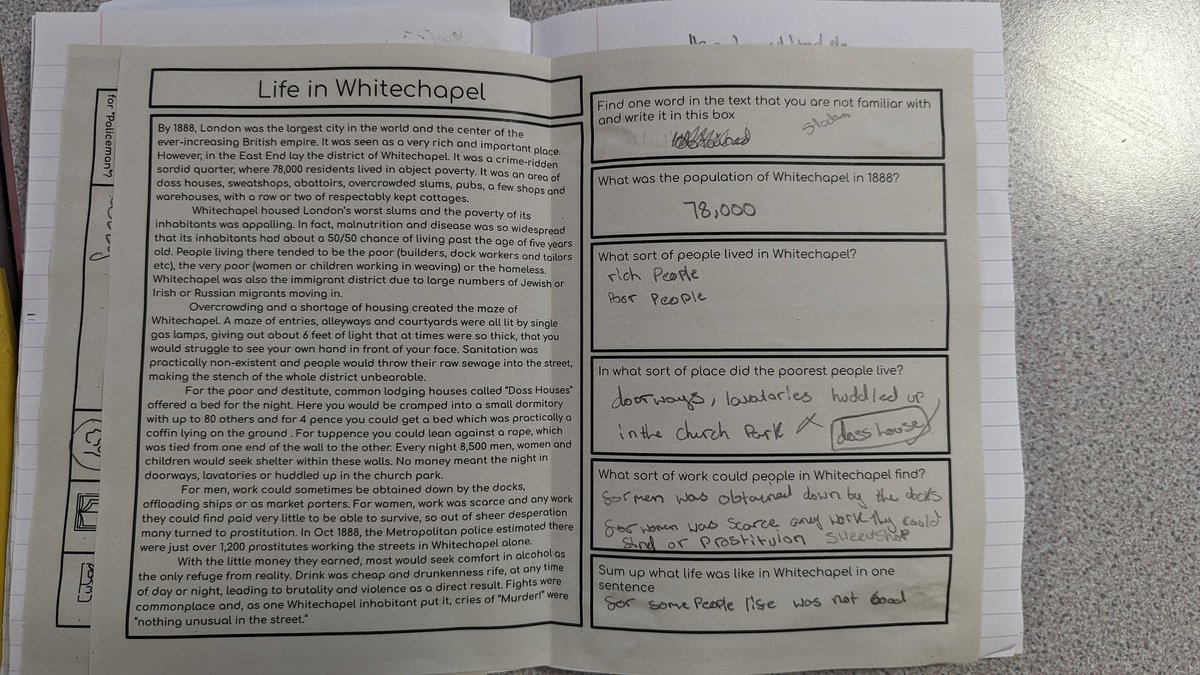 Life in Whitechapel
By 1888, London was the largest city in the world and the center of the
ever-increasing British empire. It was seen as a very rich and important place.
However, in the East End lay the district of Whitechapel. It was a crime-ridden
sordid quarter, where 78,000 residents lived in abject poverty. It was an area of
doss houses, sweatshops, abattoirs, overcrowded slums, pubs, a few shops and
warehouses, with a row or two of respectably kept cottages.
Whitechapel housed London's worst slums and the poverty of its
inhabitants was appalling. In fact, malnutrition and disease was so widespread
that its inhabitants had about a 50/50 chance of living past the age of five years
old. People living there tended to be the poor (builders, dock workers and tailors
etc), the very poor (women or children working in weaving) or the homeless.
Whitechapel was also the immigrant district due to large numbers of Jewish or
Irish or Russian migrants moving in.
Overcrowding and a shortage of housing created the maze of
Whitechapel. A maze of entries, alleyways and courtyards were all lit by single
gas lamps, giving out about 6 feet of light that at times were so thick, that you
would struggle to see your own hand in front of your face. Sanitation was
practically non-existent and people would throw their raw sewage into the street,
making the stench of the whole district unbearable.
For the poor and destitute, common lodging houses called "Doss Houses"
offered a bed for the night. Here you would be cramped into a small dormitory
with up to 80 others and for 4 pence you could get a bed which was practically a
coffin lying on the ground . For tuppence you could lean against a rope, which
was tied from one end of the wall to the other. Every night 8,500 men, women and
children would seek shelter within these walls. No money meant the night in
doorways, lavatories or huddled up in the church park.
For men, work could sometimes be obtained down by the docks,
offloading ships or as market porters. For women, work was scarce and any work
they could find paid very little to be able to survive, so out of sheer desperation
many turned to prostitution. In Oct 1888, the Metropolitan police estimated there
were just over 1,200 prostitutes working the streets in Whitechapel alone.
With the little money they earned, most would seek comfort in alcohol as
the only refuge from reality. Drink was cheap and drunkenness rife, at any time
of day or night, leading to brutality and violence as a direct result. Fights were
commonplace and, as one Whitechapel inhabitant put it, cries of "Murder!" were
"nothing unusual in the street."
for "Policeman?
Find one word in the text that you are not familiar with
and write it in this box
What was the population of Whitechapel in 1888?
78,000
What sort of people lived in Whitechapel?
rich People
Poor People
In what sort of place did the poorest people live?
doorways, lavatories huddled up
in the church Park
doss house
What sort of work could people in Whitechapel find?
for men was obtained down by the docks
for women was scarce any work they could
find or Prostituian sweetshop
Sum up what life was like in Whitechapel in one
sentence
for some People life was not Good